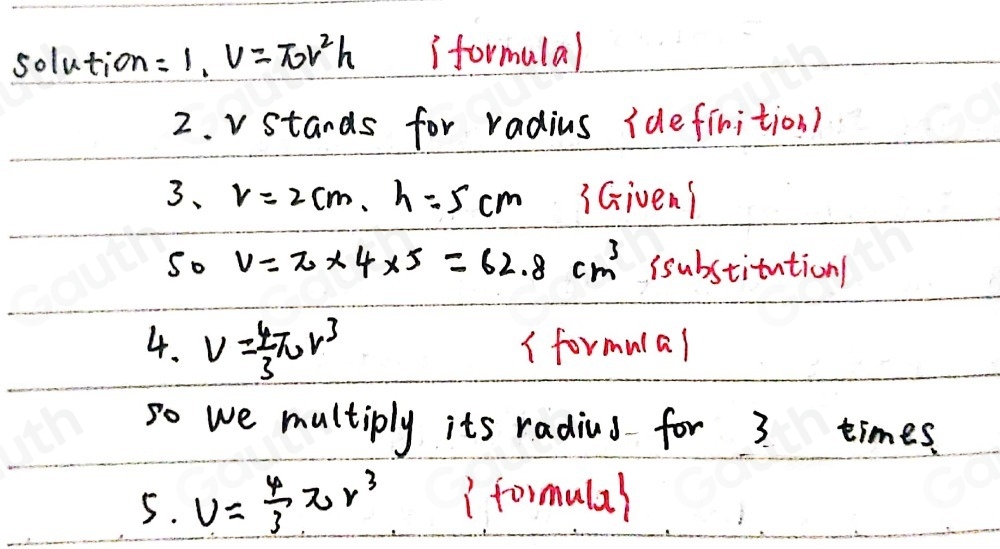 solution = 1. V = πr²h {formula}
2. r stands for radius {definition}
3. r = 2 cm. h = 5 cm {Given}
so V = π × 4 × 5 = 62.8 cm³ {substitution}
4. V = 4/3 πr³ {formula}
so we multiply its radius for 3 times.
5. V = 4/3 πr³ {formula}